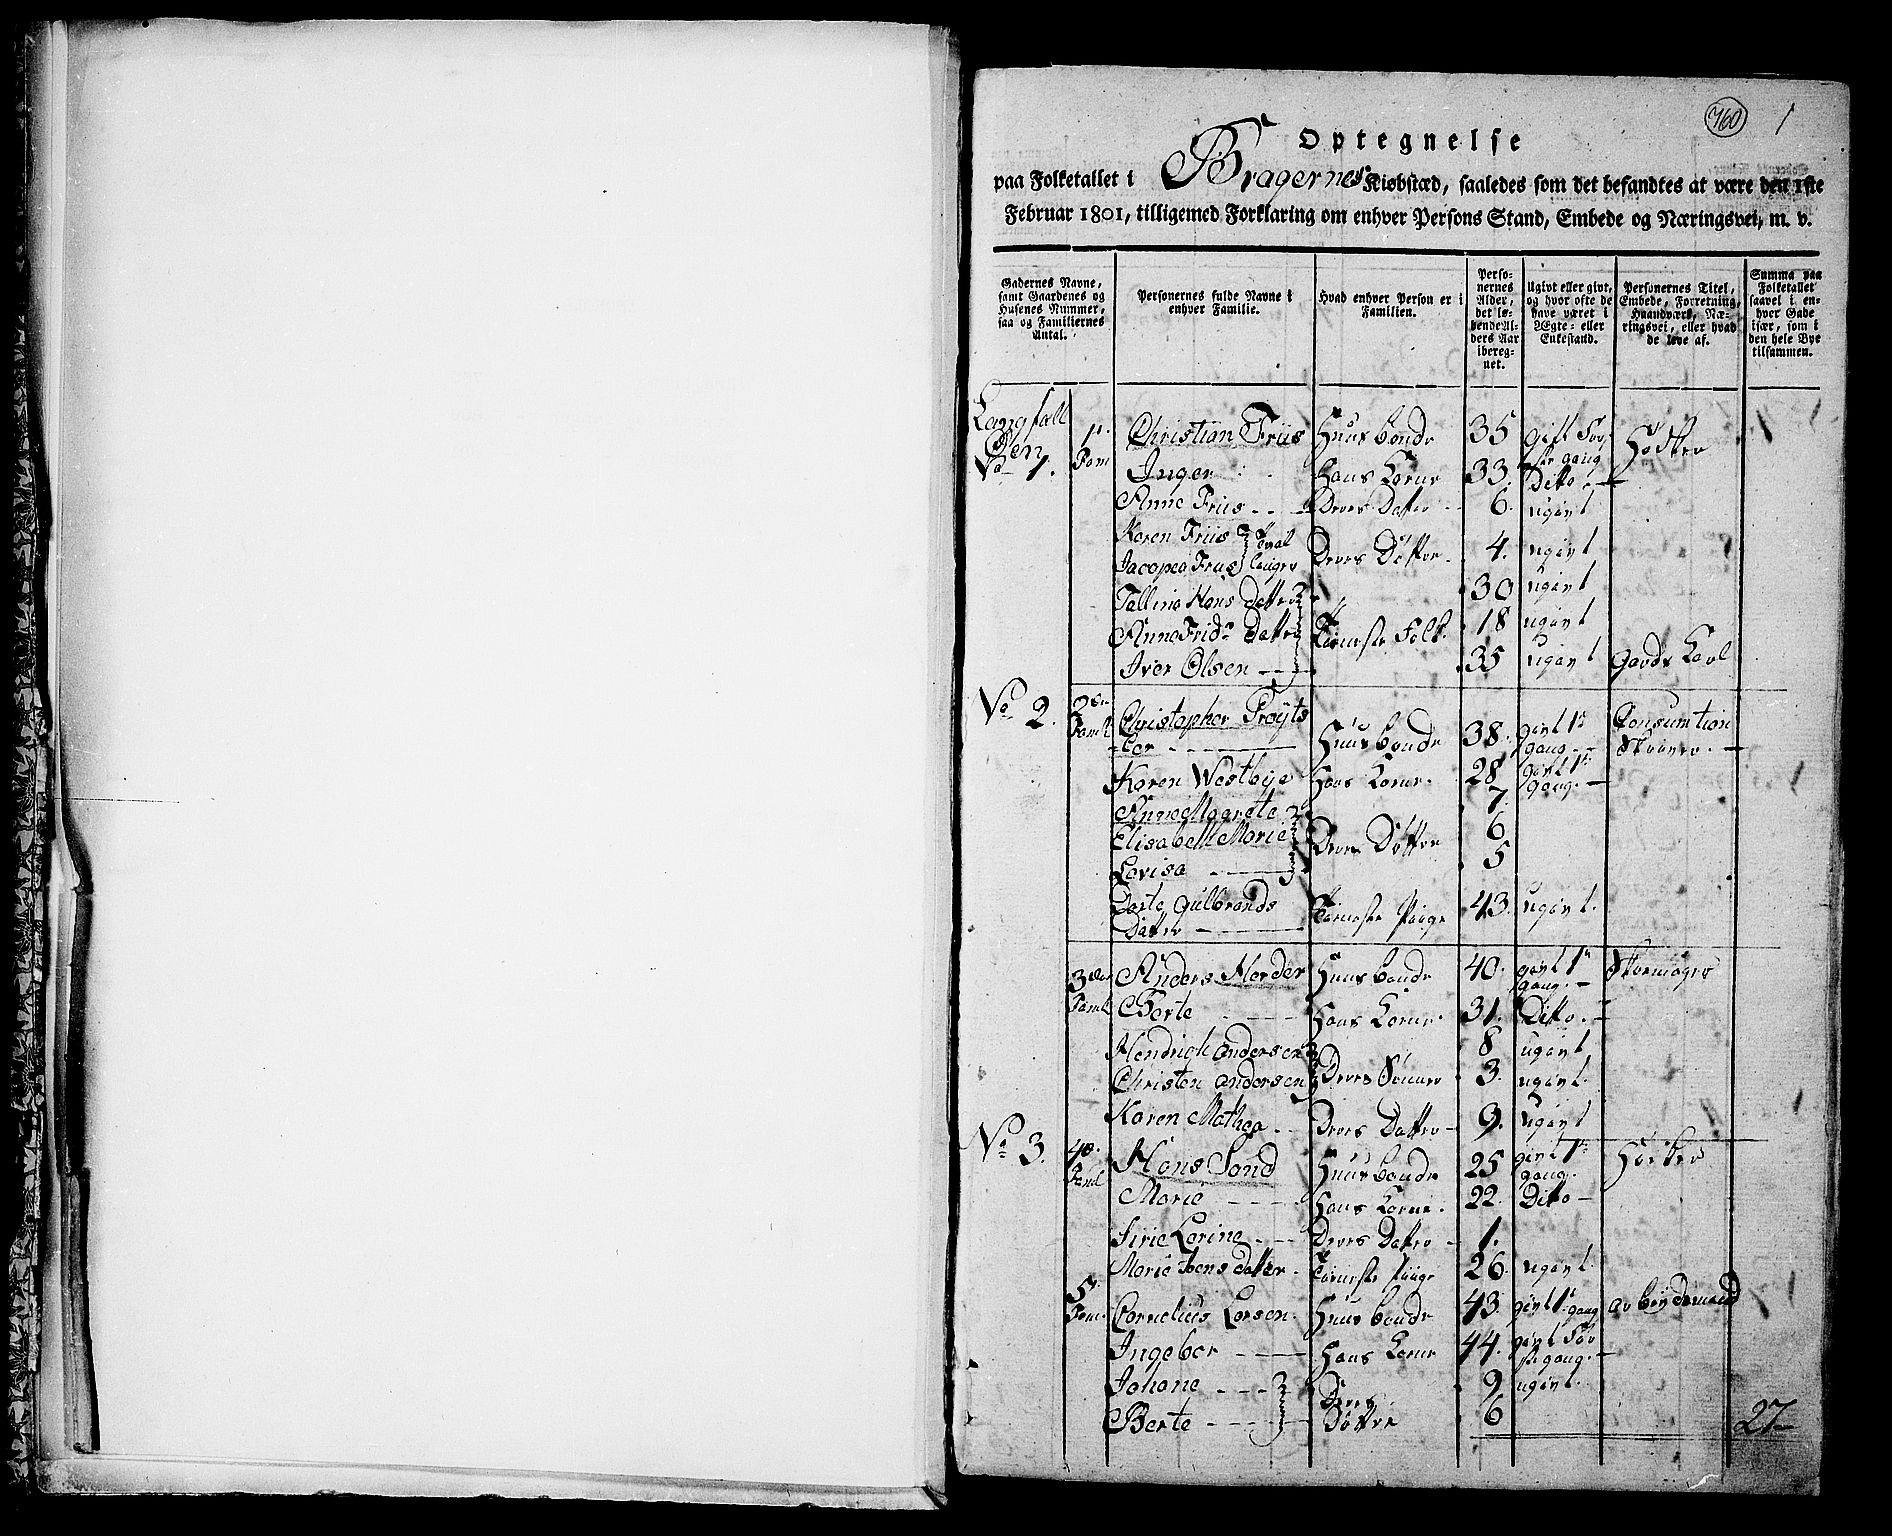 760 1
Optegnelse
paa Folketallet i Bragernes Kiøbstæd, saaledes som det befandtes at være den 1ste
Februar 1801, tilligemed Forklaring om enhver Persons Stand, Embede og Næringsvei, m. v.
Gadernes Navne,
samt Gaardenes og
Husenes Nummer,
saa og Familiernes
Antal.
Personernes fulde Navne i
enhver Familie.
Hvad enhver Person er i
Familien.
Perso-
nernes
Alder,
det lø-
bende Al-
ders Aar
iberег-
net.
Ugivt eller givt,
og hvor ofte de
have været i
Ægte- eller
Enkestand.
Personernes Titel,
Embede, Forretning,
Haandværk, Næ-
ringsvei, eller hvad
de leve af.
Summa paa
Folketallet
saavel i en-
hver Gade
især, som i
den hele Bye
tilsammen.
No 1. 1. Fam Christian Friis Huusbonde 35 gift før-
ste gang
Inger Hans Kone 33 Ditto
Anne Friis Deres Datter 6 ugivt
Karen Friis
Jacopea Friis Deres Døttre 4. ugivt
Hans Datter 30 ugivt
Anne Frid Datter Tieneste Folk 18 ugivt
Iver Olsen 35 ugivt Gards Karl
No 2. 2den Faml Christopher
Huusbonde 38. givt 1
gang Consumtion
Karen Westbye Hans Kone 28 givt 1
gang.
Anne Magrete 7
Elisabeth Marie Deres Døttre 6
Lovisa 5
Dorte Gulbrands
Datter Tieneste Piige 43. ugivt.
3die Faml Anders Herder Huusbonde 40. givt 1
gang. Skomager
Berte Hans Kone. 31. Ditto.
Hendrich Andersen 8 ugivt
Christen Andersen Deres Sønner 3. ugivt.
Karen Mathea Deres Datter 9. ugivt
No 3. 4de Faml Hans Sand Huusbonde 25 givt 1
gang. Høcker
Marie Hans Kone. 22. Ditto
Sirie Lorine Deres Datter 1.
Marie Jens Datter Tieneste Piige 26. ugivt.
5. Fam Cornelius Larsen. Huusbonde 43. givt 1. gang arbeydsmand
Ingebor Hans Kone 44. givt før
ste gang.
Johane Deres 9 ugivt.
Berte Døttre 6
27